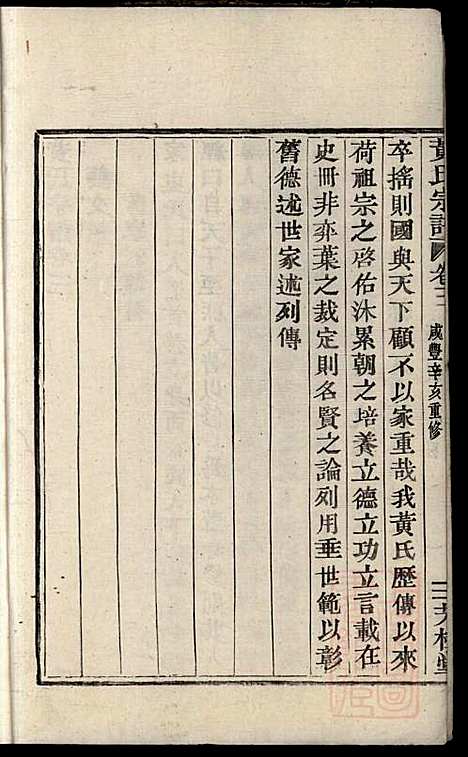 黃氏宗譜 卷三 咸豐辛亥重修
卒搖則國與天下顧不以家重哉我黃氏歷傳以來
荷祖宗之啓佑沐累朝之培養立德立功立言載在
史冊非弈葉之裁定則名賢之論列用垂世範以彰
舊德述世家述列傳